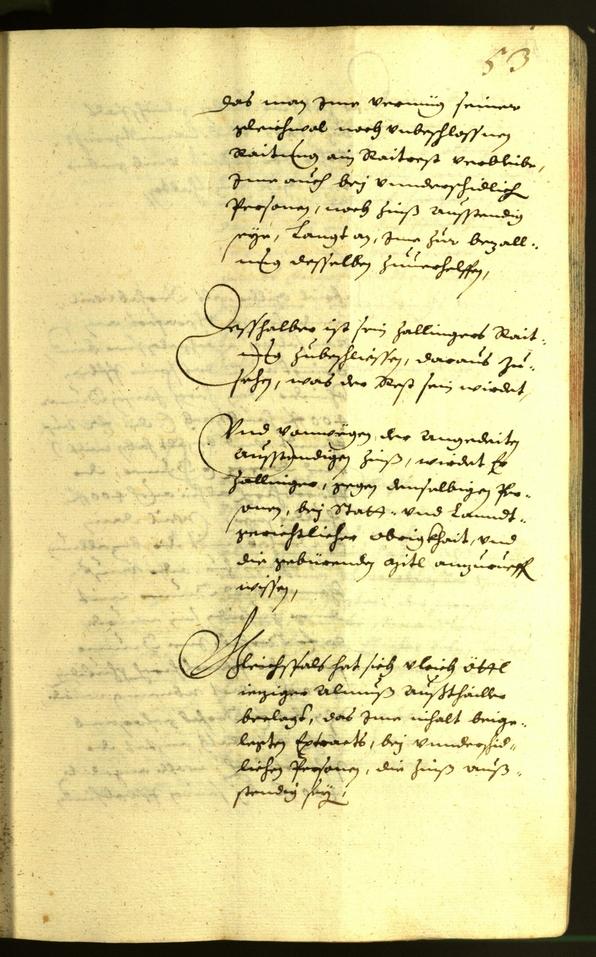 53
das man Ime vermüg seiner
gleichwol noch vnbeschlossnen
Raitung ain Raitrest verbleibe,
Ime auch bej vnnderschidlich
Personen, noch Zinß ausstendig
seye, Langt an, Ime zur bezall-
ung desselben zuuerhelffen,
Desshalben ist sein Hallingers Rait-
ung zubeschliessen, daraus zu-
sehen, was der Rest sein wirdet,
Vnd von wegen, der angedeiten
ausstendigen Zinß, wirdet Er
Hallinger, gegen denselbigen Per-
sonen, bej Statt- vnd Lanndt-
gerichtlicher Obrigkhait, vnd
die gebürenden anzurueffen
wissen,
Gleichsfals hat sich Vlrich Öttl
ieziger Almuß Außthailler
beclagt, das Ime inhalt beige-
legten Extracts, bej vnnderschid-
lichen Personen, die Zinß auß-
stendig sey,